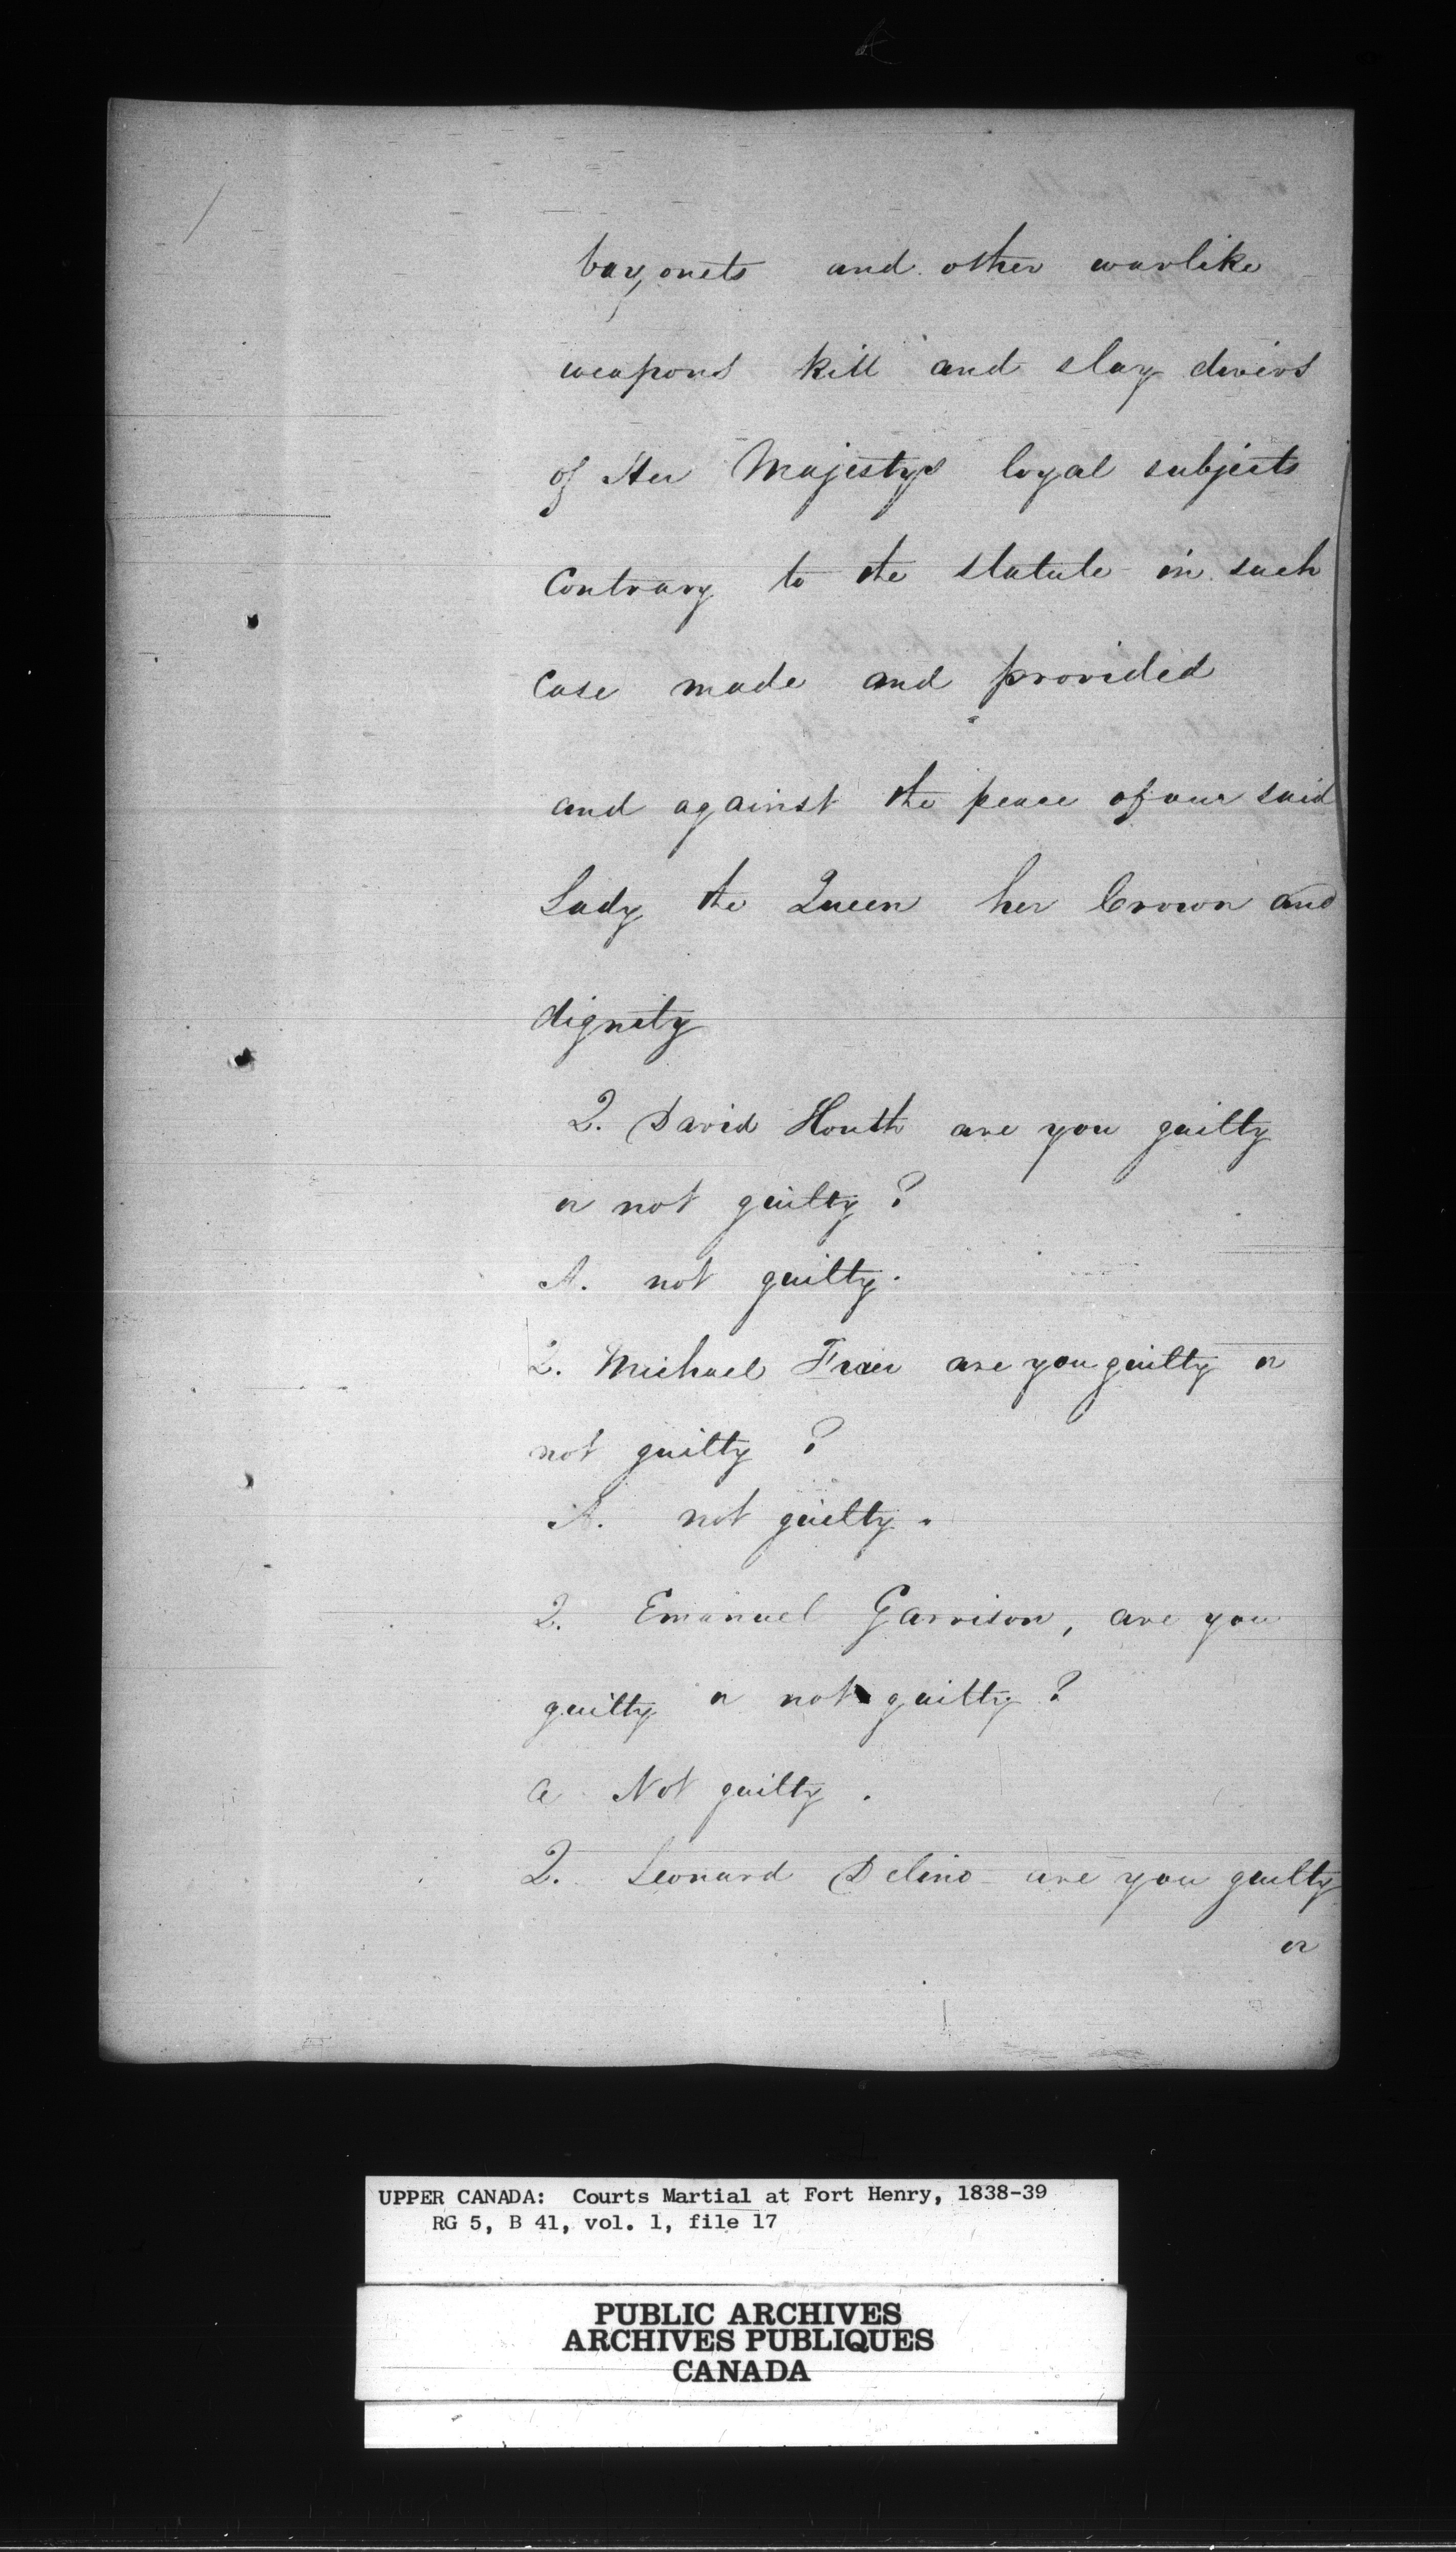 bayonets and other warlike
weapons kill and slay divers
of Her Majestys loyal subjects
Contrary to the statute in such
Case made and provided
and against the peace of our said
Lady the Queen her Crown and
dignity
Q. David Houth are you guilty
or not guilty ?
A. not guilty.
Q. Michael Fraer are you guilty or
not guilty ?
A. not guilty.
Q. Emanuel Garrison, are you
guilty or not guilty ?
a Not guilty .
Q. Leonard Delino are you guilty
or
UPPER CANADA: Courts Martial at Fort Henry, 1838-39
RG 5, B 41, vol. 1, file 17
PUBLIC ARCHIVES
ARCHIVES PUBLIQUES
CANADA